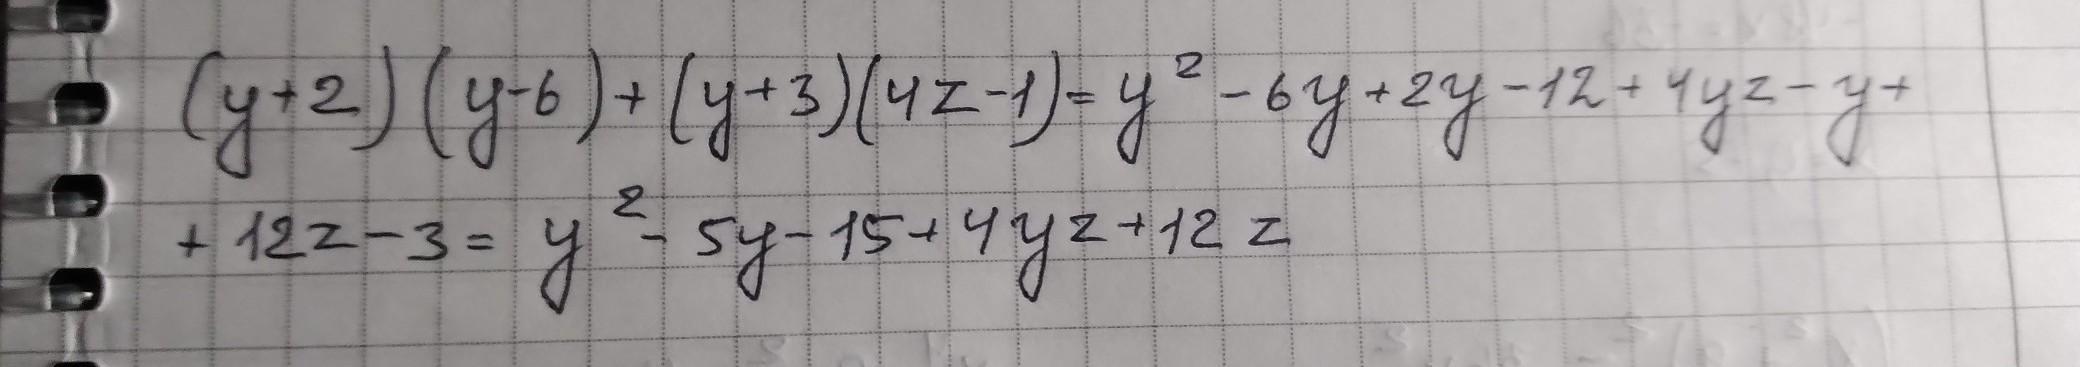 (y+2)(y-6)+(y+3)(4z-1)=y²-6y+2y-12+4yz-y+
+12z-3=y²-5y-15+4yz+12z